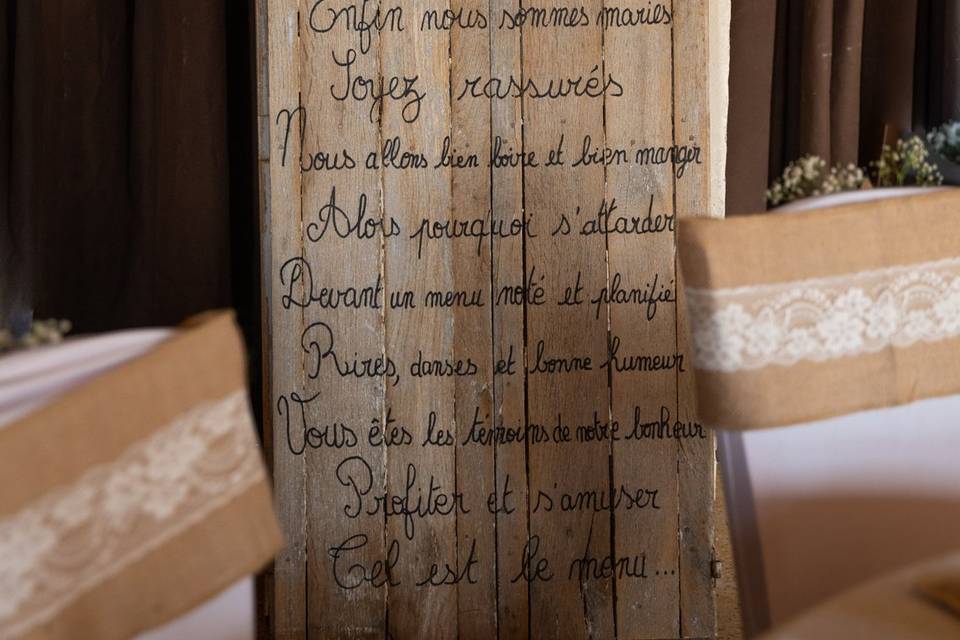 Enfin nous sommes mariés
Soyez rassurés
Nous allons bien boire et bien manger
Alors pourquoi s'attarder
Devant un menu noté et planifié
Rires, danses et bonne humeur
Vous êtes les témoins de notre bonheur
Profiter et s'amuser
Tel est le menu...